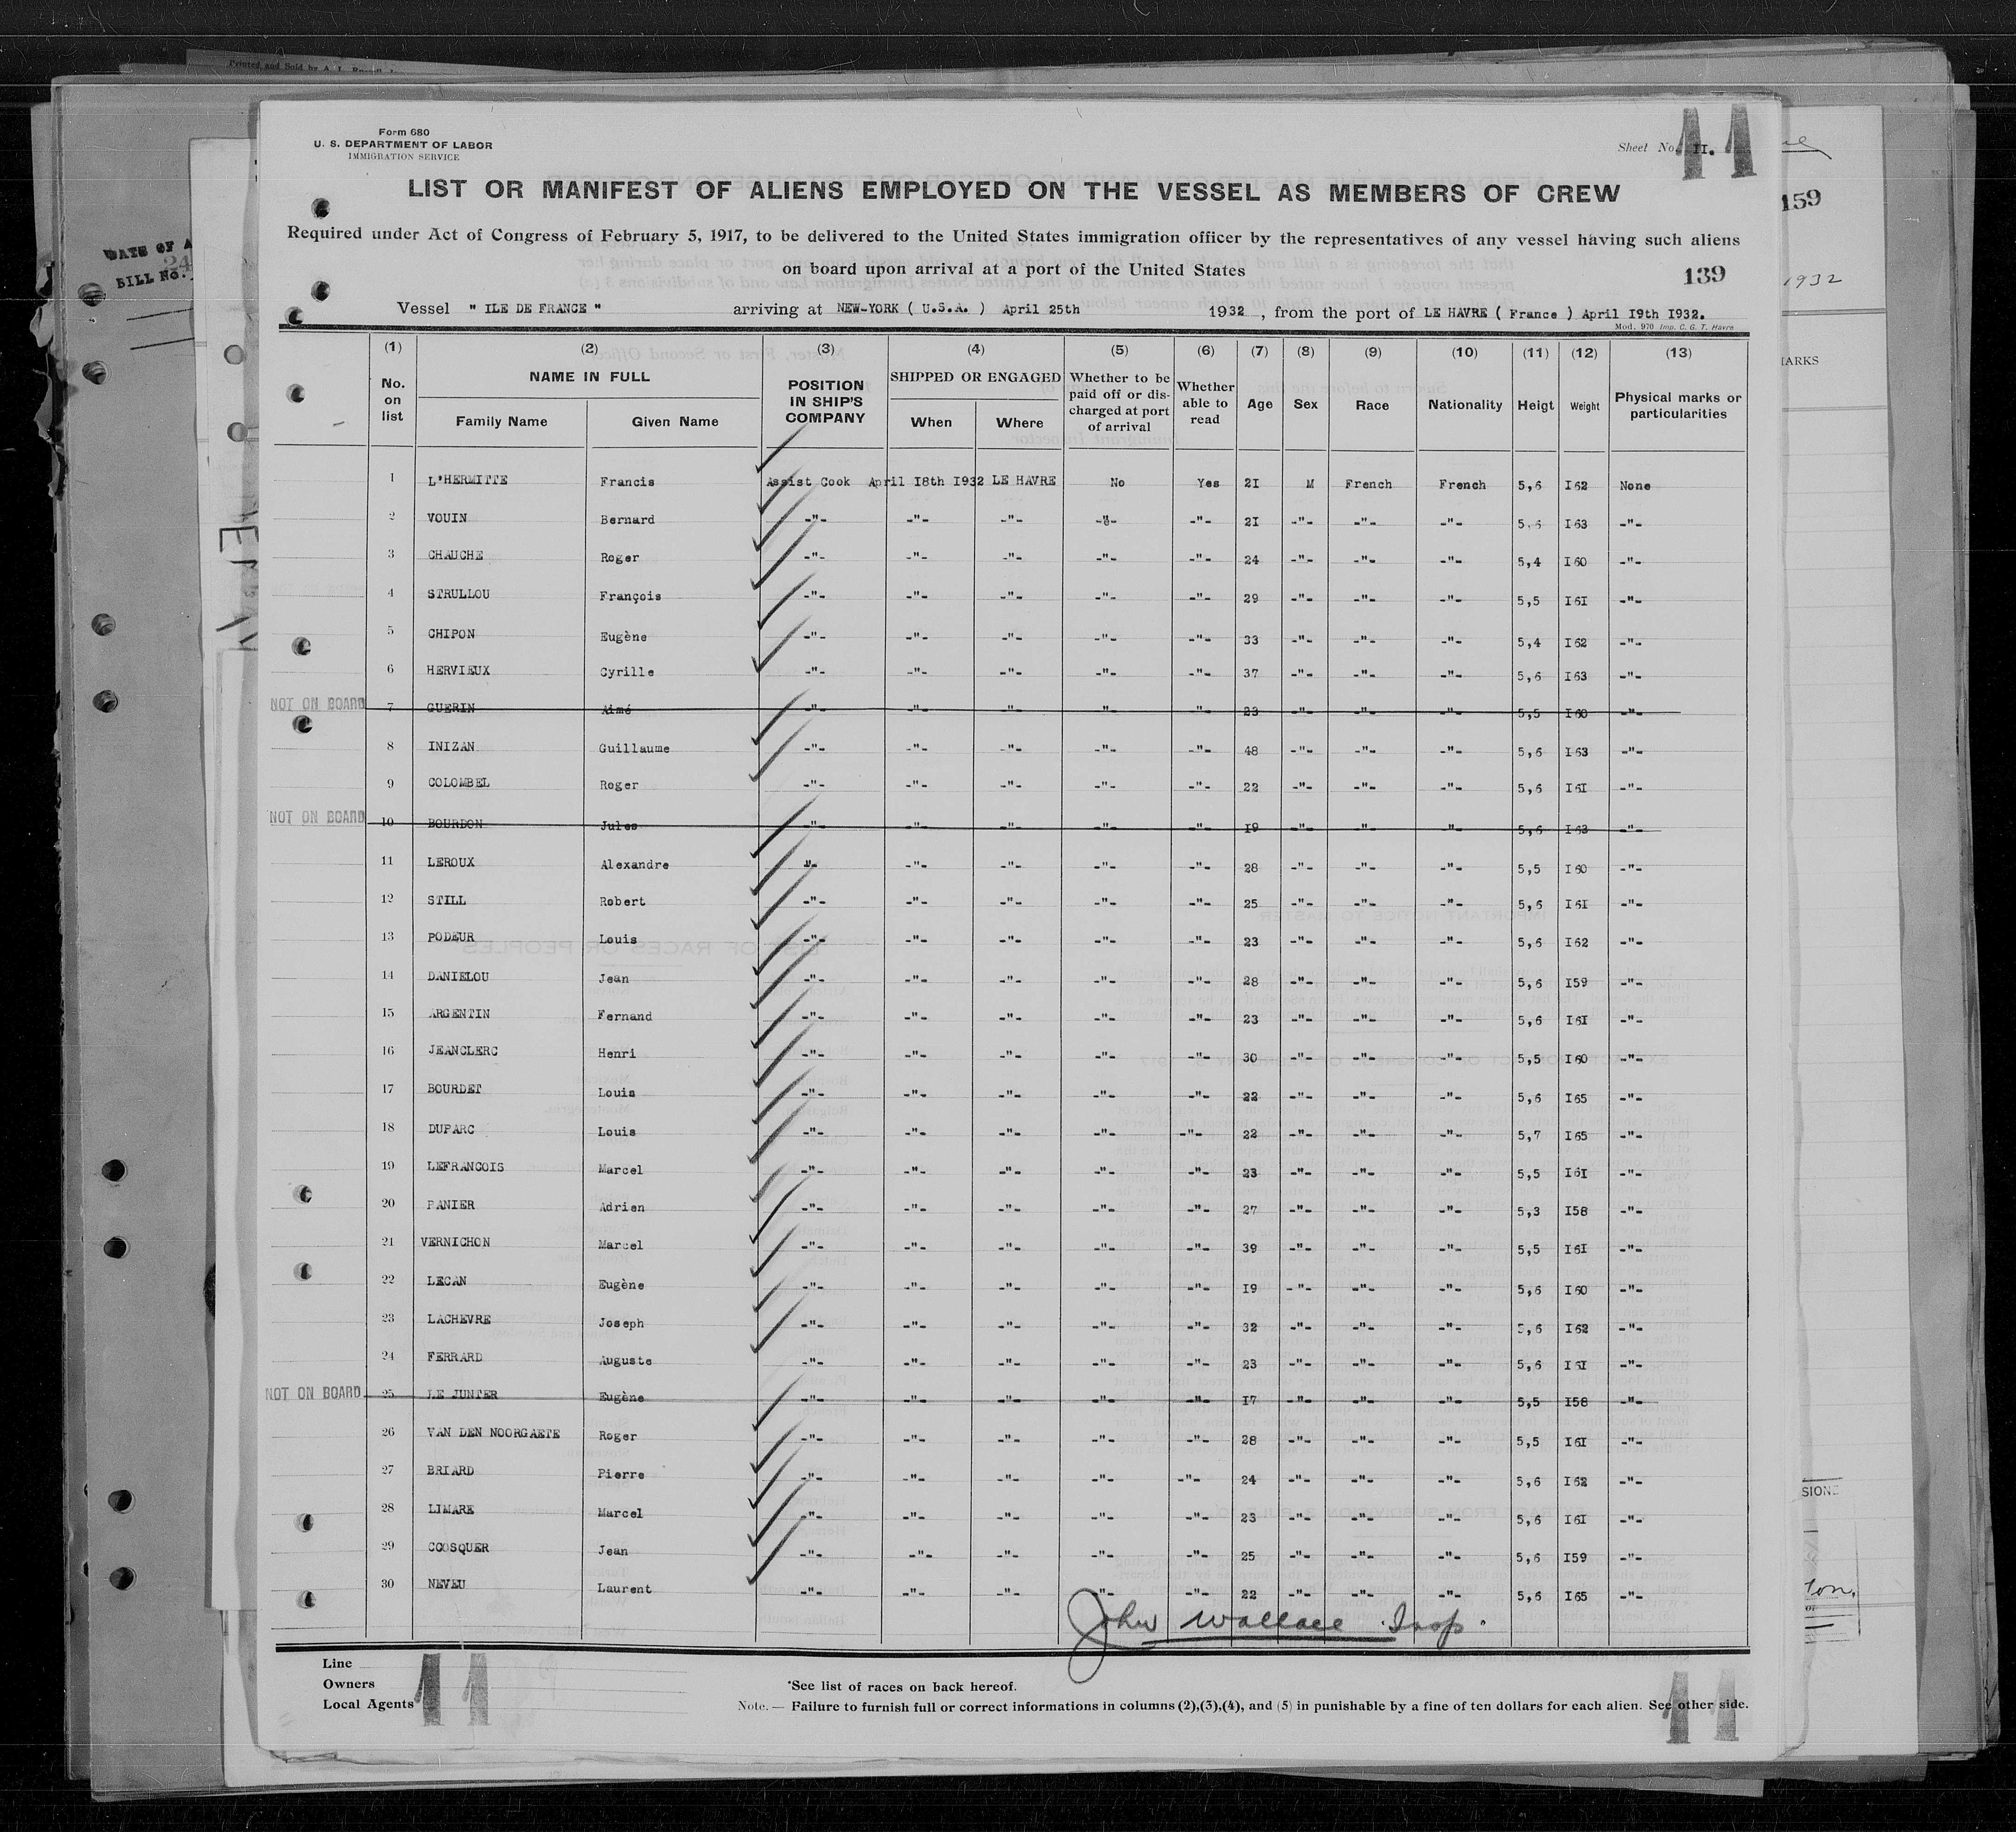 Form 680
U. S. DEPARTMENT OF LABOR
IMMIGRATION SERVICE
Sheet No. II.
11
LIST OR MANIFEST OF ALIENS EMPLOYED ON THE VESSEL AS MEMBERS OF CREW
Required under Act of Congress of February 5, 1917, to be delivered to the United States immigration officer by the representatives of any vessel having such aliens
on board upon arrival at a port of the United States
139
Vessel " ILE DE FRANCE " arriving at NEW-YORK ( U.S.A. ) April 25th 1932 , from the port of LE HAVRE ( France ) April I9th I932.
Mod. 970 Imp. C. G. T. Havre
(1) (2) (3) (4) (5) (6) (7) (8) (9) (10) (11) (12) (13)
No. on list NAME IN FULL Family Name Given Name POSITION IN SHIP'S COMPANY SHIPPED OR ENGAGED When Where Whether to be paid off or discharged at port of arrival Whether able to read Age Sex Race Nationality Heigt Weight Physical marks or particularities
1 L'HERMITTE Francis Assist Cook April I8th I932 LE HAVRE No Yes 2I M French French 5,6 I62 None
2 VOUIN Bernard -"- -"- -"- -"- -"- 2I -"- -"- -"- 5,6 I63 -"-
3 CHAUCHE Roger -"- -"- -"- -"- -"- 24 -"- -"- -"- 5,4 I60 -"-
4 STRULLOU François -"- -"- -"- -"- -"- 29 -"- -"- -"- 5,5 I6I -"-
5 CHIPON Eugène -"- -"- -"- -"- -"- 33 -"- -"- -"- 5,4 I62 -"-
6 HERVIEUX Cyrille -"- -"- -"- -"- -"- 37 -"- -"- -"- 5,6 I63 -"-
NOT ON BOARD 7 GUERIN Aimé -"- -"- -"- -"- -"- 23 -"- -"- -"- 5,5 I60 -"-
8 INIZAN Guillaume -"- -"- -"- -"- -"- 48 -"- -"- -"- 5,6 I63 -"-
9 COLOMBEL Roger -"- -"- -"- -"- -"- 22 -"- -"- -"- 5,6 I6I -"-
NOT ON BOARD 10 BOURDON Jules -"- -"- -"- -"- -"- I9 -"- -"- -"- 5,6 I63 -"-
11 LEROUX Alexandre "- -"- -"- -"- -"- 28 -"- -"- -"- 5,5 I60 -"-
12 STILL Robert -"- -"- -"- -"- -"- 25 -"- -"- -"- 5,6 I6I -"-
13 PODEUR Louis -"- -"- -"- -"- -"- 23 -"- -"- -"- 5,6 I62 -"-
14 DANIELOU Jean -"- -"- -"- -"- -"- 28 -"- -"- -"- 5,6 I59 -"-
15 ARGENTIN Fernand -"- -"- -"- -"- -"- 23 -"- -"- -"- 5,6 I6I -"-
16 JEANCLERC Henri -"- -"- -"- -"- -"- 30 -"- -"- -"- 5,5 I60 -"-
17 BOURDET Louis -"- -"- -"- -"- -"- 22 -"- -"- -"- 5,6 I65 -"-
18 DUPARC Louis -"- -"- -"- -"- -"- 22 -"- -"- -"- 5,7 I65 -"-
19 LEFRANCOIS Marcel -"- -"- -"- -"- -"- 23 -"- -"- -"- 5,5 I6I -"-
20 PANIER Adrien -"- -"- -"- -"- -"- 27 -"- -"- -"- 5,3 I58 -"-
21 VERNICHON Marcel -"- -"- -"- -"- -"- 39 -"- -"- -"- 5,5 I6I -"-
22 LECAN Eugène -"- -"- -"- -"- -"- I9 -"- -"- -"- 5,6 I60 -"-
23 LACHEVRE Joseph -"- -"- -"- -"- -"- 32 -"- -"- -"- 5,6 I62 -"-
24 FERRARD Auguste -"- -"- -"- -"- -"- 23 -"- -"- -"- 5,6 I6I -"-
NOT ON BOARD 25 LE JUNTER Eugène -"- -"- -"- -"- -"- I7 -"- -"- -"- 5,5 I58 -"-
26 VAN DEN NOORGAETE Roger -"- -"- -"- -"- -"- 28 -"- -"- -"- 5,5 I6I -"-
27 BRIARD Pierre -"- -"- -"- -"- -"- 24 -"- -"- -"- 5,6 I62 -"-
28 LIMARE Marcel -"- -"- -"- -"- -"- 23 -"- -"- -"- 5,6 I6I -"-
29 COOSQUER Jean -"- -"- -"- -"- -"- 25 -"- -"- -"- 5,6 I59 -"-
30 NEVEU Laurent -"- -"- -"- -"- -"- 22 -"- -"- -"- 5,6 I65 -"-
John Wallace Insp.
Line
Owners
Local Agents
11
*See list of races on back hereof.
Note. — Failure to furnish full or correct informations in columns (2),(3),(4), and (5) in punishable by a fine of ten dollars for each alien. See other side.
11
159
1932
BILL No.